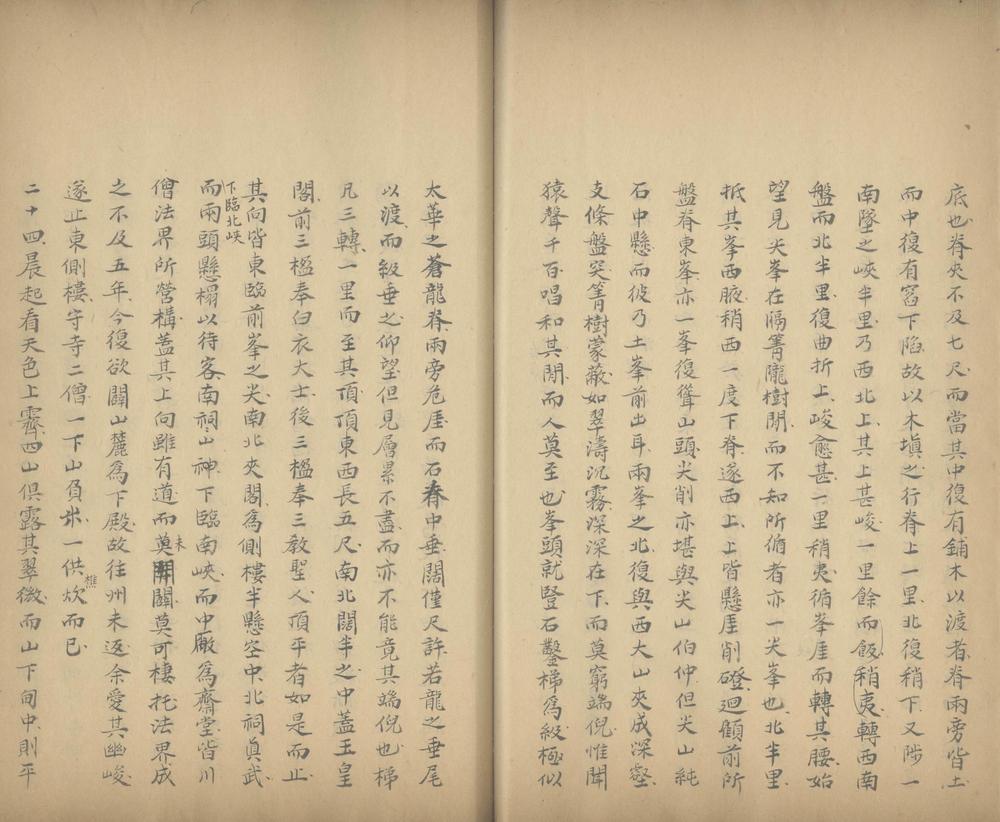 底也脊夾不及七尺而當其中復有鋪木以渡者脊兩旁皆土
而中復有窞下陷故以木填之行脊上一里北復稍下又陟一
南墜之峽半里乃西北上其上甚峻一里餘而飯稍夷轉西南
盤而北半里復曲折上峻愈甚一里稍夷循峯崖而轉其腰始
望見尖峯在隔箐隴樹間而不知所循者亦一尖峯也北半里
抵其峯西腋稍西一度下脊遂西上上皆懸崖削磴迴顧前所
盤脊東峯亦一峯復聳山頭尖削亦堪與尖山伯仲但尖山純
石中懸而彼乃土峯前出耳兩峯之北復與西大山夾成深壑
支條盤突箐樹蒙蔽如翠濤沉霧深深在下而莫窮端倪惟聞
猿聲千百唱和其間而人莫至也峯頭就豎石鑿梯為級極似
太華之蒼龍脊兩旁危崖而石脊中垂闊僅尺許若龍之垂尾
以渡而級垂之仰望但見層累不盡而亦不能竟其端倪也梯
凡三轉一里而至其頂頂東西長五尺南北闊半之中蓋玉皇
閣前三楹奉白衣大士後三楹奉三教聖人頂平者如是而止
其向皆東臨前峯之尖南北夾閣為側樓半懸空中北祠真武
下臨北峽
而兩頭懸榻以待客南祠山神下臨南峽而中厰為齋堂皆川
僧法界所營構蓋其上向雖有道而莫開闢莫可棲托法界成
未
之不及五年今復欲闢山麓為下殿故往州未返余愛其幽峻
遂止東側樓守寺二僧一下山負米一供炊而已
樵
二十四晨起看天色上霽四山俱露其翠微而山下甸中則平